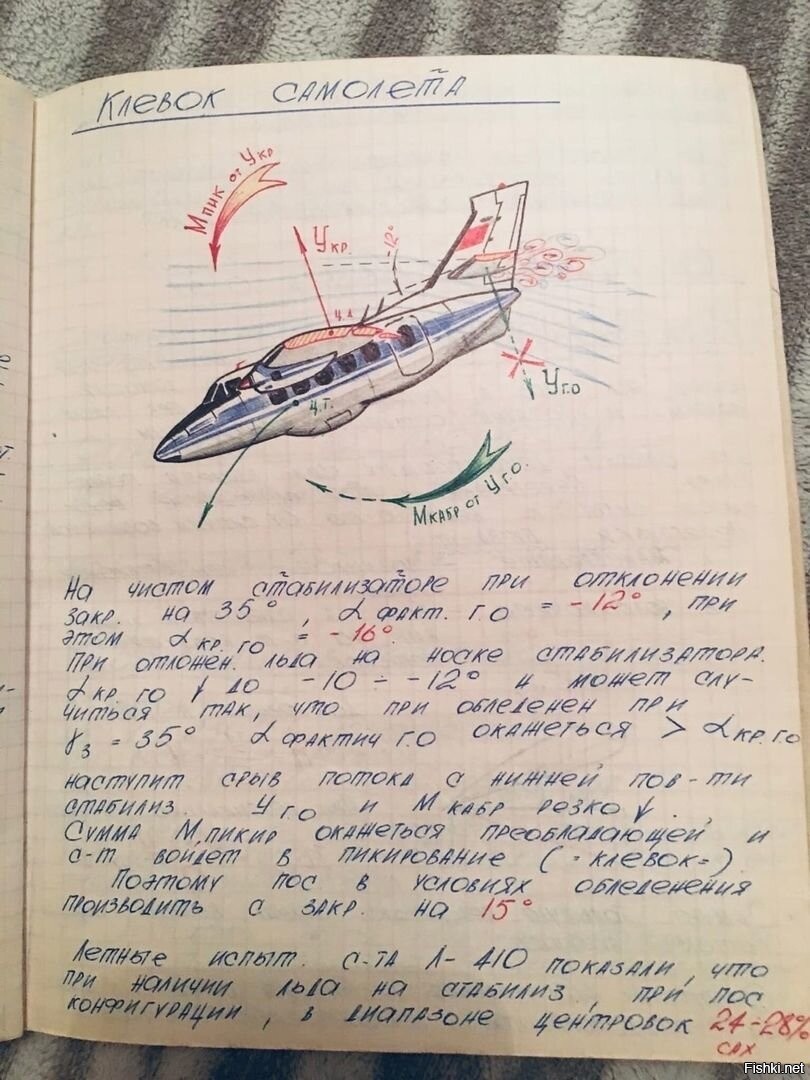 Клевок самолета
Мпик от Yкр
Yкр.
-12°
ц.д.
ц.т.
Yг.о
Мкабр от Yг.о.
На чистом стабилизаторе при отклонении
закр. на 35°, α факт. г.о = -12°, при
этом α кр. го = -16°
При отложен. льда на носке стабилизатора.
α кр. го ↓ до -10 ÷ -12° и может слу-
читься так, что при обледенен при
γз = 35° α фактич г.о окажеться > α кр. г.о
наступит срыв потока с нижней пов-ти
стабилиз. Yг.о и М кабр резко ↓.
Сумма М.пикир окажеться преобладающей и
с-т войдет в пикирование (=клевок=).
Поэтому пос в условиях обледенения
производить с закр. на 15°
Летные испыт. с-та Л-410 показали, что
при наличии льда на стабилиз, при пос
конфигурации, в диапазоне центровок 24-28%
сах
Fishki.net